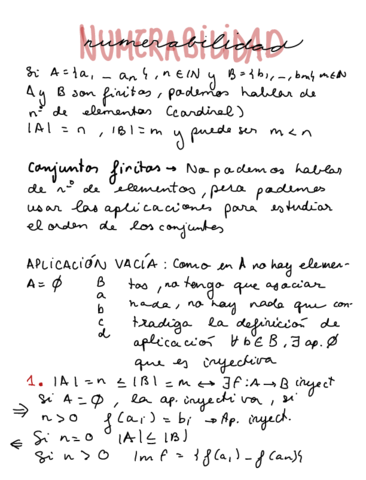 NUMERABILIDAD
numerabilidad
Si A = {a, _ an}, n ∈ IN y B = {b, _, bm} m ∈ N
A y B son finitos, podemos hablar de
nº de elementos (cardinal)
|A| = n , |B| = m y puede ser m < n
Conjuntos finitos → No podemos hablar
de nº de elementos, pero podemos
usar las aplicaciones para estudiar
el orden de los conjuntos
APLICACIÓN VACÍA : Como en A no hay elemen-
A = ∅ B tos, no tengo que asociar
a nada, no hay nada que con-
b tradiga la definición de
c aplicación ∀b ∈ B, ∃ ap. ∅
d que es inyectiva
1. |A| = n ≤ |B| = m ↔ ∃ f : A → B inyect
Si A = ∅ , la ap. inyectiva, si
⇒ n > 0 f(ai) = bi → Ap. inyect.
⇐ Si n = 0 |A| ≤ |B|
Si n > 0 Im f = {f(a,) _ f(an)}